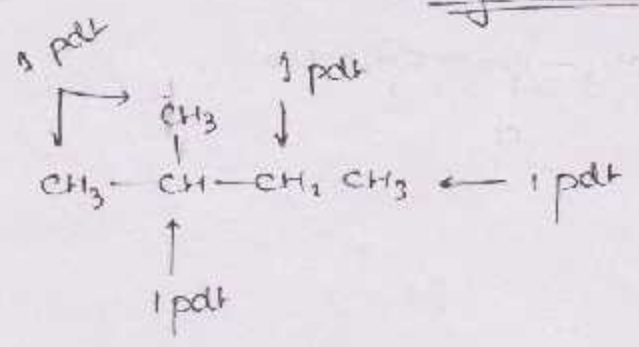 1 pdt
1 pdt
CH3
CH3 - CH - CH2 CH3 ← 1 pdt
1 pdt